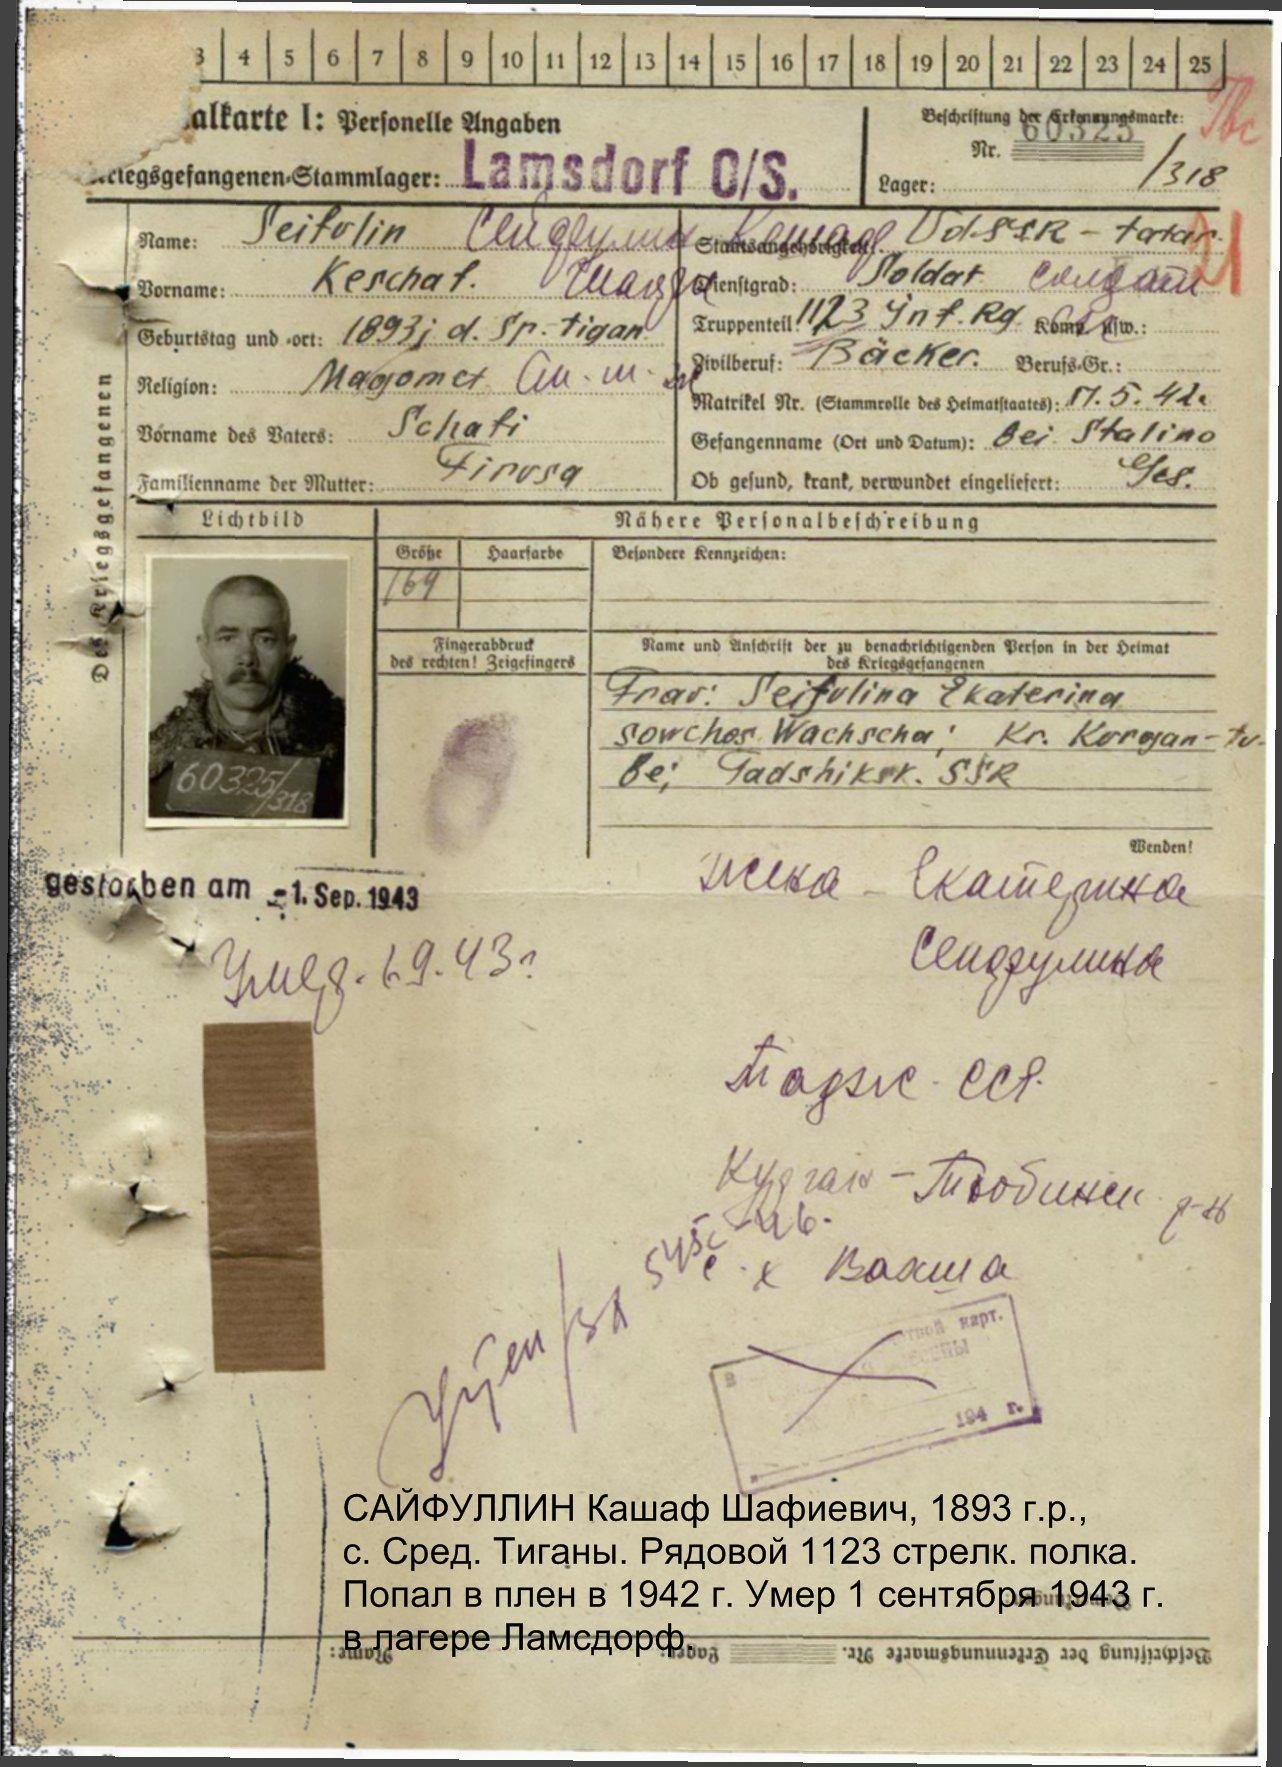 3 4 5 6 7 8 9 10 11 12 13 14 15 16 17 18 19 20 21 22 23 24 25
alkarte I: Personelle Angaben
Kriegsgefangenen-Stammlager: Lamsdorf O/S.
Beschriftung der Erkennungsmarke:
Nr. 60325
Lager: /318
Tbc
21
Des Kriegsgefangenen
Name: Seifulin Сейфулин
Vorname: Keschaf.
Geburtstag und -ort: 1893j d. Sr. Tigan
Religion: Magomet
Vorname des Vaters: Schafi
Familienname der Mutter: Firusa
Staatsangehörigkeit: UdSSR - tatar.
Dienstgrad: Soldat солдат
Truppenteil: 1123 Inf. Rg Komp. usw.:
Zivilberuf: Bäcker. Berufs-Gr.:
Matrikel Nr. (Stammrolle des Heimatstaates): 17.5.42.
Gefangenname (Ort und Datum): bei Stalino
Ob gesund, krank, verwundet eingeliefert: Ges.
Lichtbild
Nähere Personalbeschreibung
Größe Haarfarbe Besondere Kennzeichen:
169
60325/318
Fingerabdruck
des rechten! Zeigefingers
Name und Anschrift der zu benachrichtigenden Person in der Heimat
des Kriegsgefangenen
Frau: Seifulina Ekaterina
sowchos Wachscha; Kr. Kurgan-tu-
be; Tadshiksk. SSR
Wenden!
gestorben am -1. Sep. 1943
Умер. 1.9.43г
жена - Екатерина
Сейфулина
Тадж. ССР.
Курган-Тюбинск. р-н
с.х Вахша
карт.
194 г.
САЙФУЛЛИН Кашаф Шафиевич, 1893 г.р.,
с. Сред. Тиганы. Рядовой 1123 стрелк. полка.
Попал в плен в 1942 г. Умер 1 сентября 1943 г.
в лагере Ламсдорф.
Name: Lager: Beschriftung der Erkennungsmarke Nr.